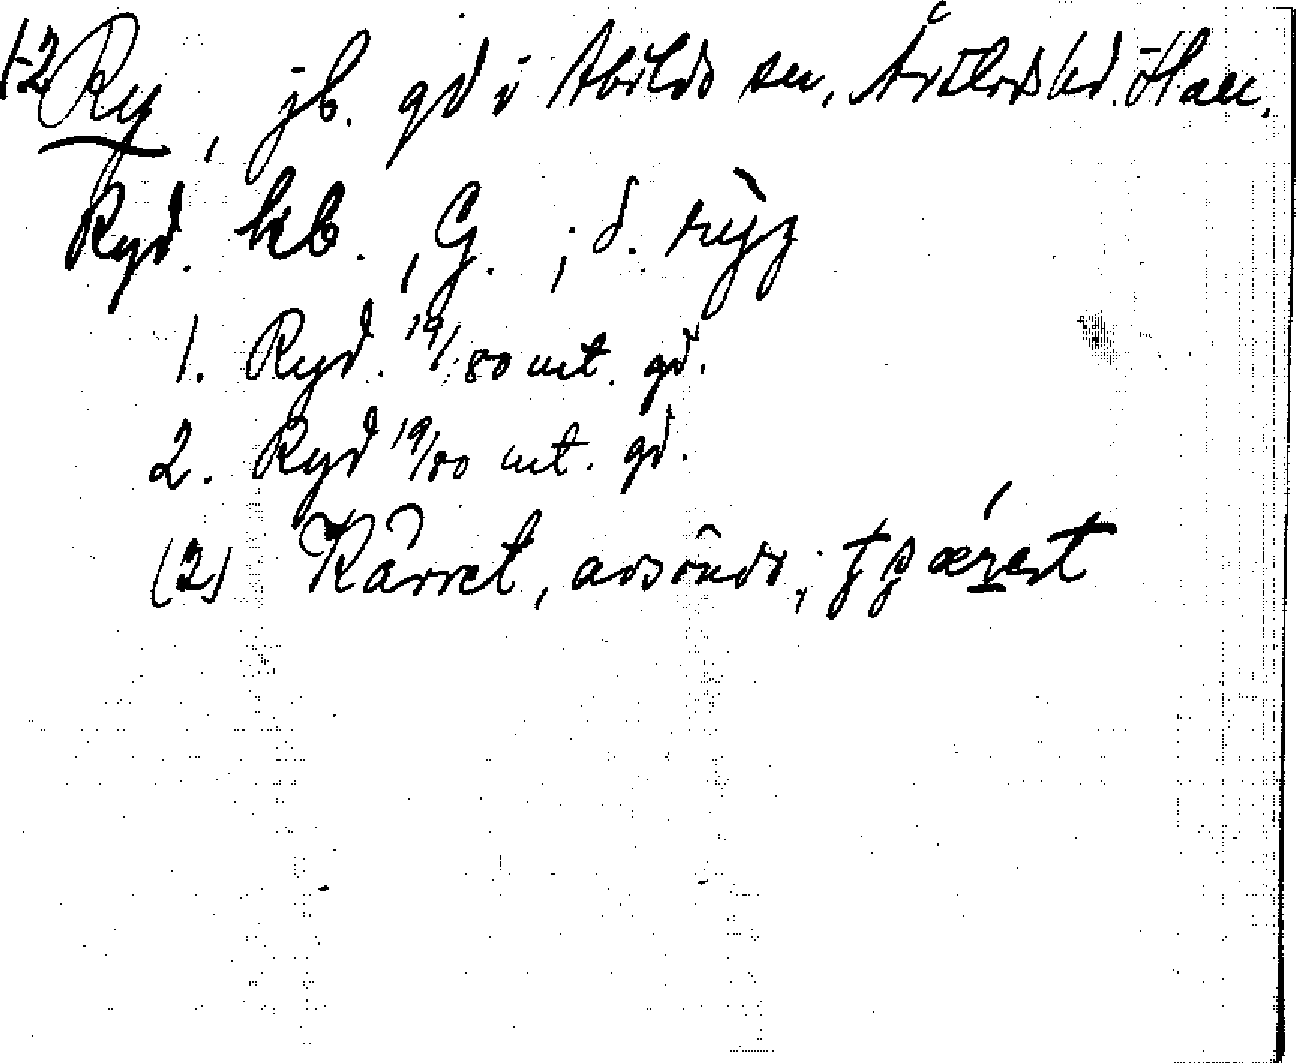 1-2 Ry, jb. gd i Abilds sn, Årstads hd. Hall.
Ryd. kb., G.; d. rỳz
1. Ryd. 19/80 mt. gd.
2. Ryd 19/80 mt. gd.
(2) Kärret, avsönds;